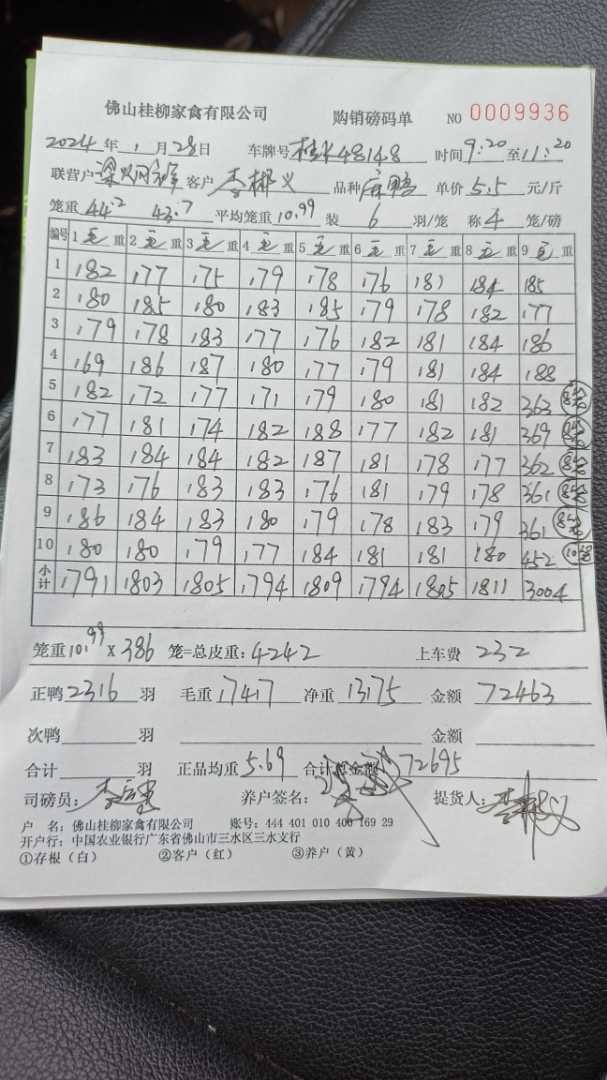 佛山桂柳家食有限公司 购销磅码单 NO 0009936
2024年 1月28日 车牌号 48148 时间9:20至11:20
联营户 客户 李郴义 品种 麻鸭 单价5.5元/斤
笼重 44.2 43.7 平均笼重10.99 装 6 羽/笼 称 4 笼/磅
编号 1毛重 2毛重 3毛重 4毛重 5毛重 6毛重 7毛重 8毛重 9毛重
1 182 177 175 179 178 176 181 184 185
2 180 185 180 183 185 179 178 182 177
3 179 178 183 177 176 182 181 184 186
4 169 186 187 180 177 179 181 184 188
5 182 172 177 171 179 180 181 182 363 8笼
6 177 181 174 182 188 177 182 181 369 8笼
7 183 184 184 182 187 181 178 177 362 8笼
8 173 176 183 183 176 181 179 178 361 8笼
9 186 184 183 180 179 178 183 179 361 8笼
10 180 180 179 177 184 181 181 180 452 10笼
小计 1791 1803 1805 1794 1809 1794 1805 1811 3004
笼重10.99×386 笼=总皮重:4242 上车费 232
正鸭2316羽 毛重17417 净重13175 金额72463
次鸭 羽 金额
合计 羽 正品均重5.69 合计总金额72695
司磅员: 养户签名: 提货人:李郴义
户 名:佛山桂柳家禽有限公司 账号:444 401 010 400 169 29
开户行:中国农业银行广东省佛山市三水区三水支行
①存根(白) ②客户(红) ③养户(黄)